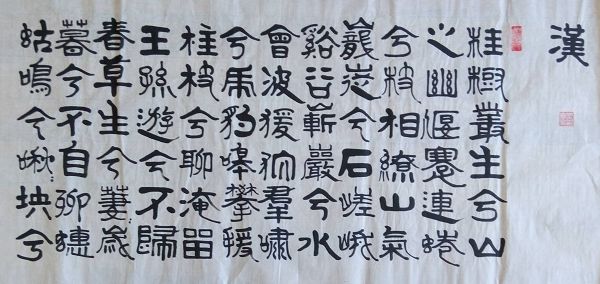 漢
桂樹叢生兮山
之幽偃蹇連蜷
兮枝相繚山氣
巃嵸兮石嵯峨
谿谷嶄巖兮水
曾波猨狖羣嘯
兮虎豹嗥攀援
桂枝兮聊淹留
王孫遊兮不歸
春草生兮萋:歲
暮兮不自聊蟪
蛄鳴兮啾:坱兮